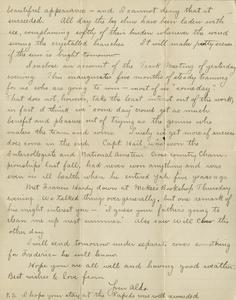 beautiful appearance - and I cannot doing that at
succeeded. All day the big elms have been laden with
ice, complaining softly of their burden whenever the wind
swung the crystalled branches. It will make pretty scenes
if the sun is bright tomorrow.
I enclose an account of the Track Meeting of yesterday
evening. This inaugurates five months of steady training
for us who are going to win - most of us "someday."
that does not, however, take the least interest out of the work;
in fact I think we "some day" crowd get as much
benefit and pleasure out of trying as the genius who
makes the team and wins. Surely we get more if success
does come in the end. Capt Nail, who won the
intercollegiate and National Amateur Cross Country Cham-
pionships last fall, had never worn anything and was
even in ill health when he entered Yale five years ago
Met Francis Hardy down at Wake's Bookshop Thursday
evening. We talked things over generally, but one remark of
his might interest you - "I guess your father's going to
clean me up next summer." Also saw Will the
other day.
I will send tomorrow under separate cover something
for Frederic he will know.
Hope you are all well and having good weather.
Best wishes & love from,
I hope your stay at the Rapids was well rewarded.